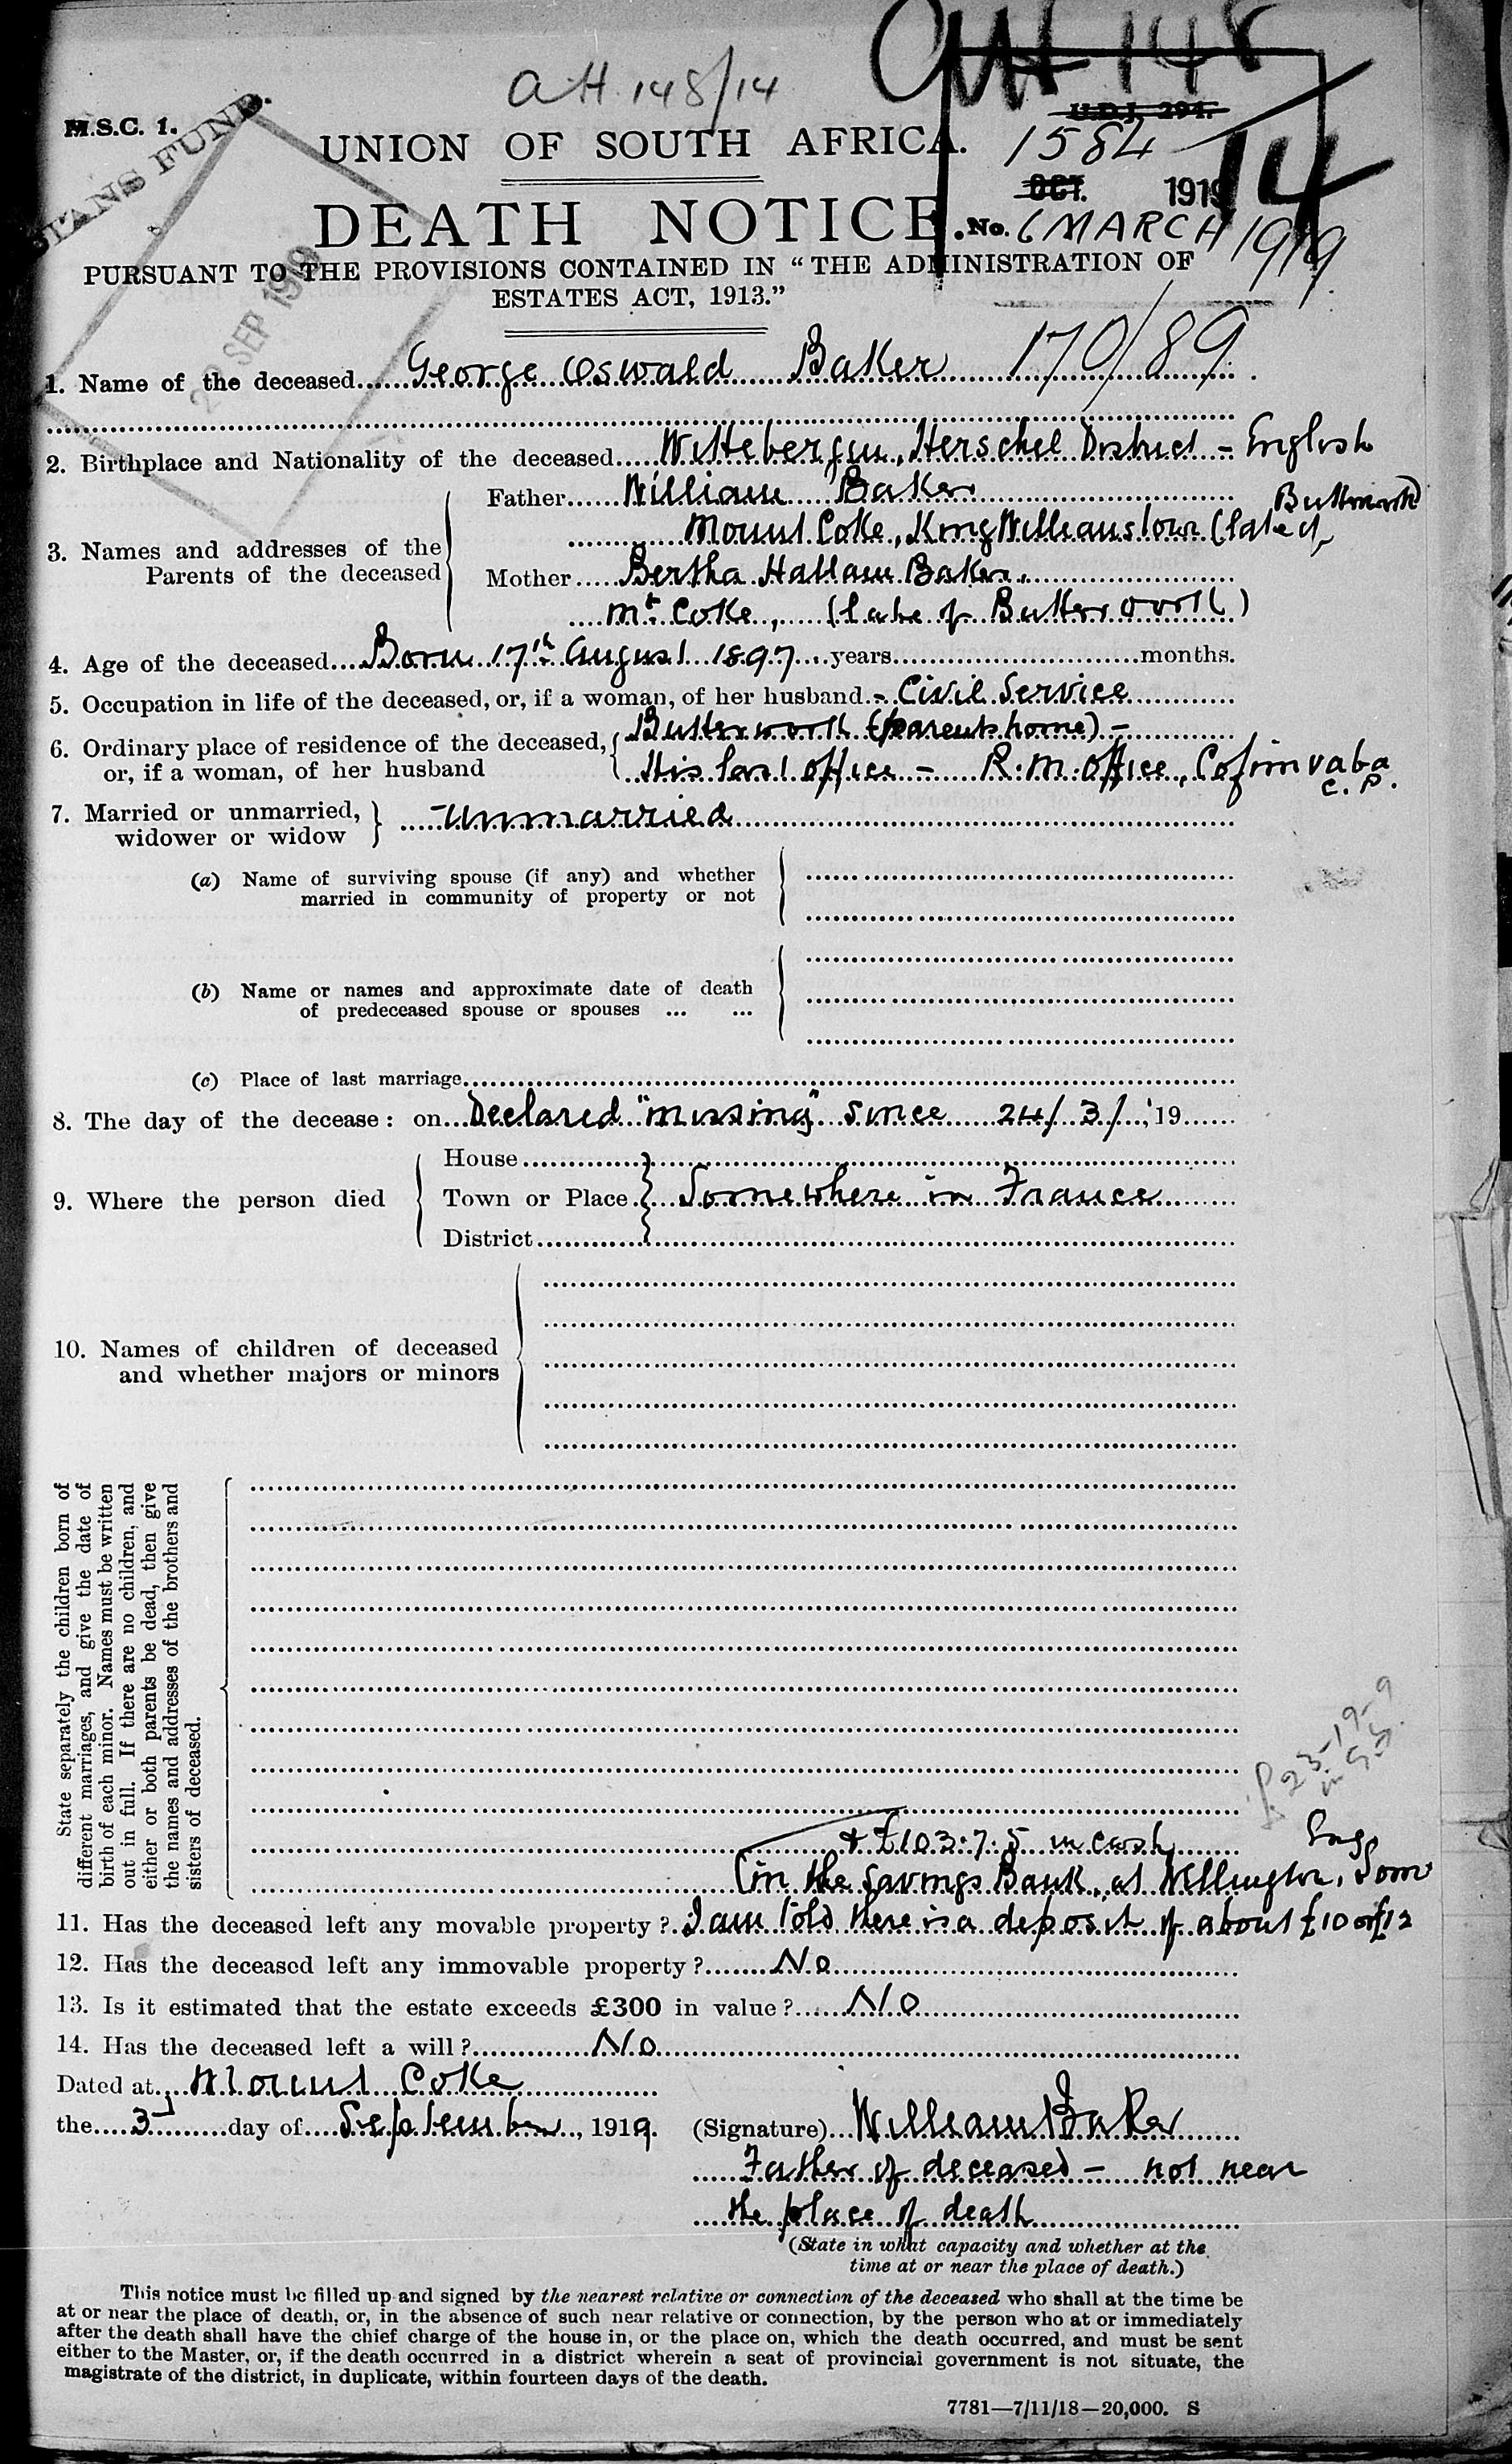 AH 148/14
AH 148
14
M.S.C. 1.
U.D.J. 294.
UNION OF SOUTH AFRICA.
1584
OCT. 1919
DEATH NOTICE. No. 6 MARCH 1919
PURSUANT TO THE PROVISIONS CONTAINED IN “THE ADMINISTRATION OF
ESTATES ACT, 1913.”
FUND.
SEP 1919
170/89
1. Name of the deceased George Oswald Baker
2. Birthplace and Nationality of the deceased Wittebergen, Herschel District - English
3. Names and addresses of the Parents of the deceased
Father William Baker
Mount Coke, King Williamstown (late of Butterworth)
Mother Bertha Hallam Baker,
Mt. Coke, (late of Butterworth)
4. Age of the deceased Born 17th August 1897 years months.
5. Occupation in life of the deceased, or, if a woman, of her husband - Civil Service
6. Ordinary place of residence of the deceased, Butterworth (parents home) -
or, if a woman, of her husband His last office - R.M. Office, Cofimvaba
C.P.
7. Married or unmarried,
widower or widow Unmarried
(a) Name of surviving spouse (if any) and whether
married in community of property or not
(b) Name or names and approximate date of death
of predeceased spouse or spouses ... ...
(c) Place of last marriage
8. The day of the decease: on Declared "missing" since 24/3/, '19
House
9. Where the person died Town or Place Somewhere in France
District
10. Names of children of deceased
and whether majors or minors
State separately the children born of
different marriages, and give the date of
birth of each minor. Names must be written
out in full. If there are no children, and
either or both parents be dead, then give
the names and addresses of the brothers and
sisters of deceased.
£23-19-9
in
+ £103:7:5 in cash
Eng
(in the Savings Bank, at Wellington, Som
11. Has the deceased left any movable property? I am told there is a deposit of about £10 or £12
12. Has the deceased left any immovable property? No
13. Is it estimated that the estate exceeds £300 in value? No
14. Has the deceased left a will? No
Dated at Mount Coke
the 3d day of September, 1919. (Signature) William Baker
Father of deceased - not near
the place of death
(State in what capacity and whether at the
time at or near the place of death.)
This notice must be filled up and signed by the nearest relative or connection of the deceased who shall at the time be
at or near the place of death, or, in the absence of such near relative or connection, by the person who at or immediately
after the death shall have the chief charge of the house in, or the place on, which the death occurred, and must be sent
either to the Master, or, if the death occurred in a district wherein a seat of provincial government is not situate, the
magistrate of the district, in duplicate, within fourteen days of the death.
7781—7/11/18—20,000. S